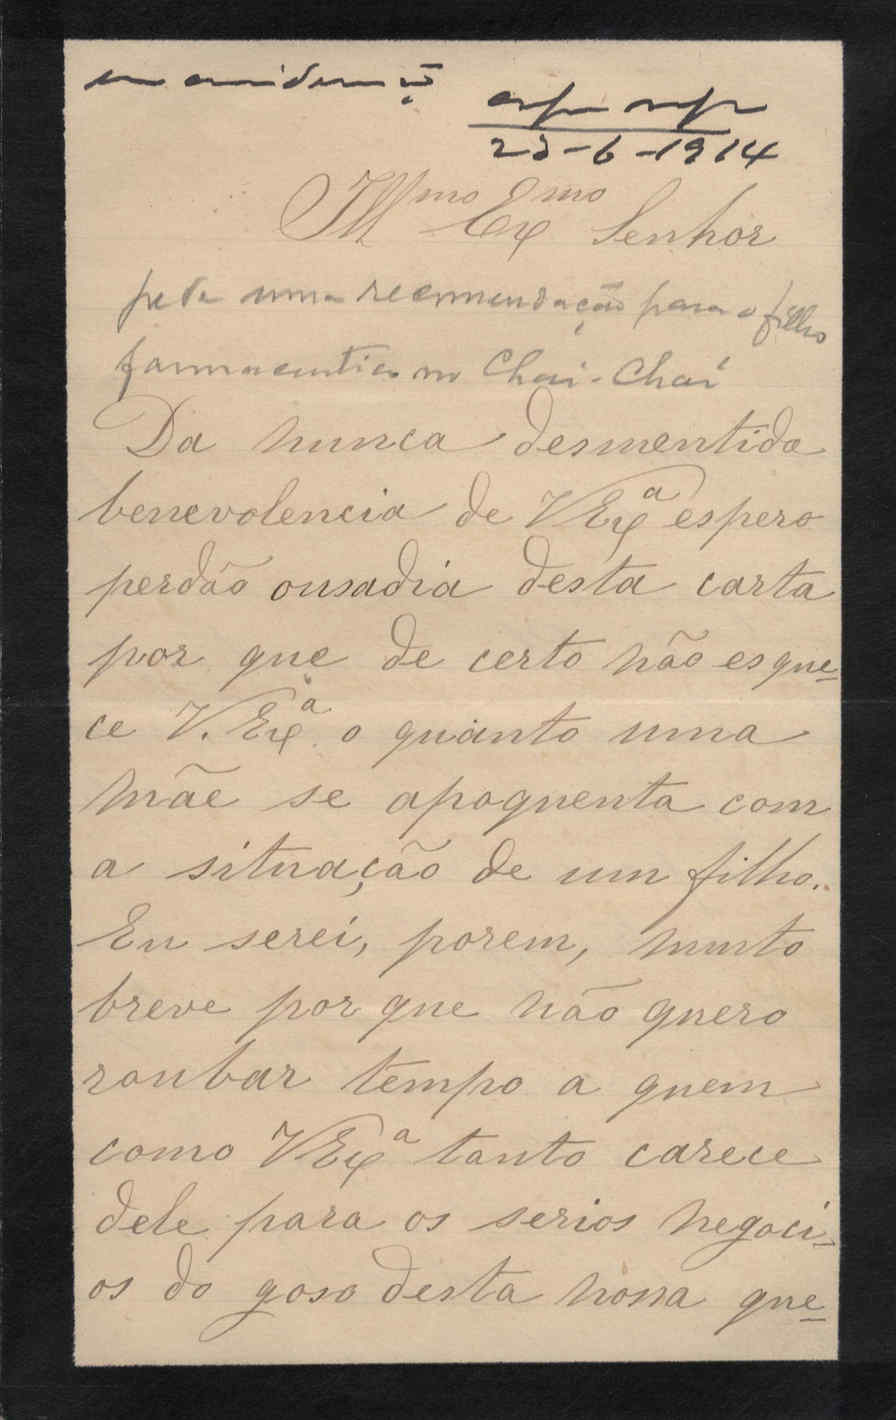 em consideração
23-6-1914
Illmo Exmo Senhor
pede uma recomendação para o filho
farmaceutico no Chai-Chai
Da nunca desmentida
benevolencia de VExª espero
perdão ousadia desta carta
por que de certo não esque-
ce V. Exª o quanto uma
mãe se apoquenta com
a situação de um filho.
Eu serei, porem, muito
breve por que não quero
roubar tempo a quem
como VExª tanto carece
dele para os serios negoci-
os do goso desta nossa que-